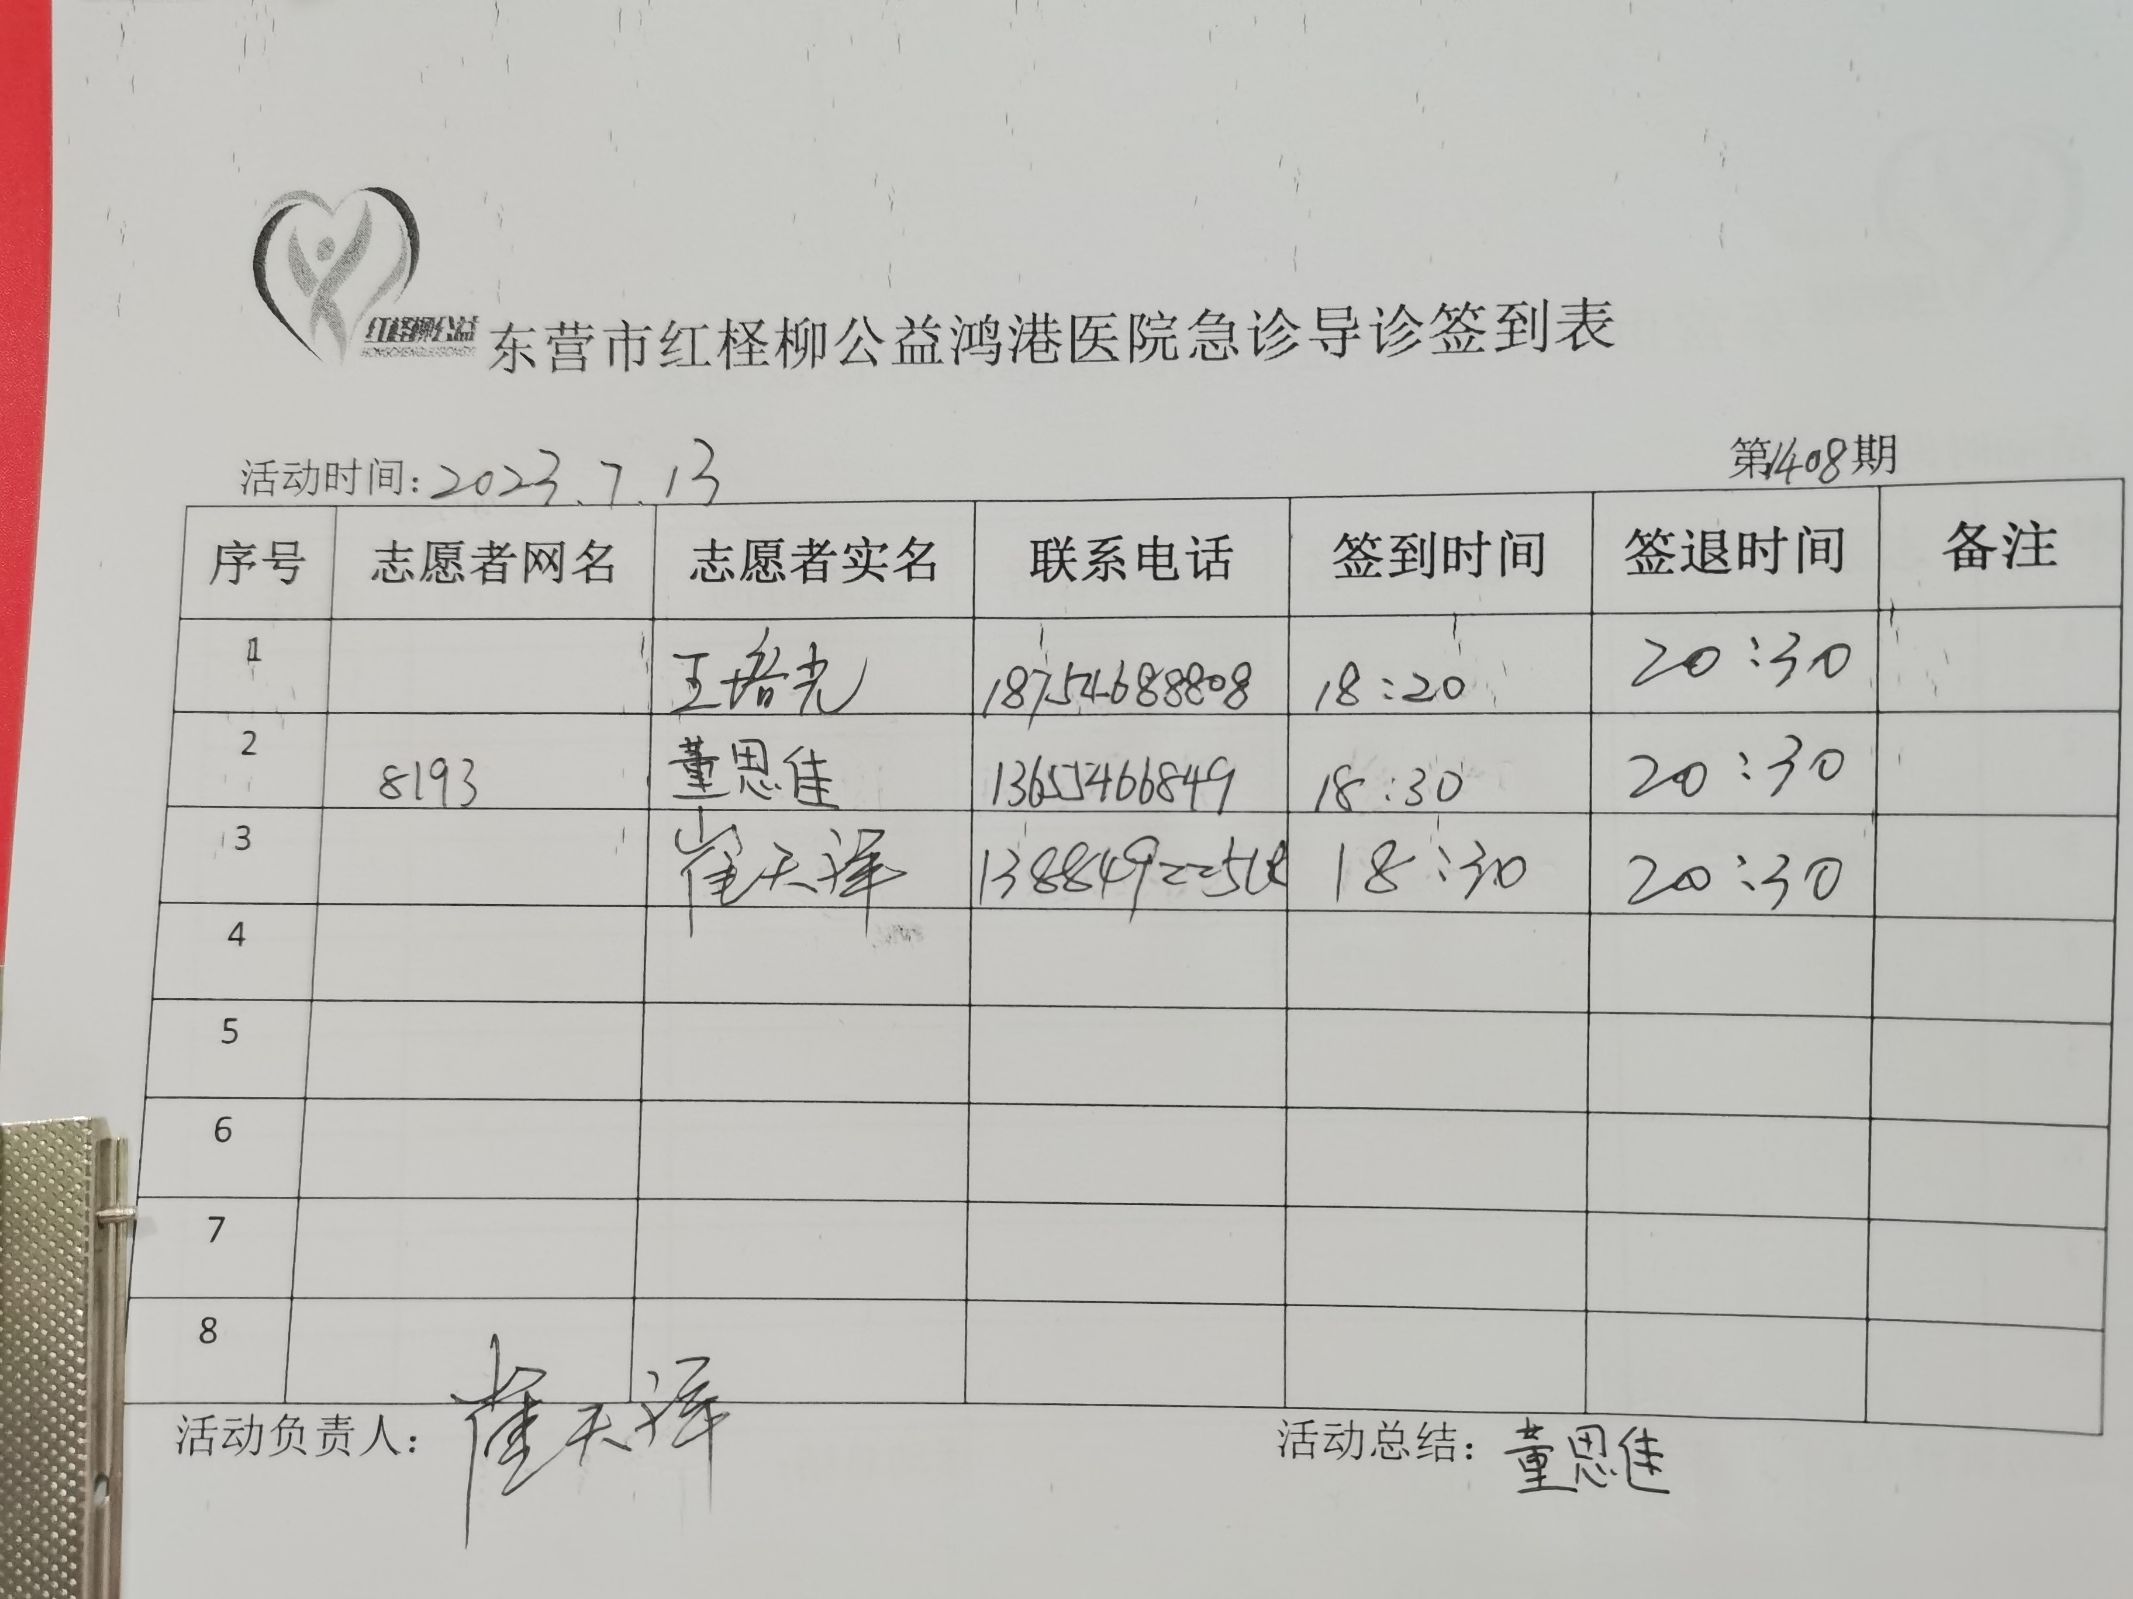 红柽柳公益
东营市红柽柳公益鸿港医院急诊导诊签到表
活动时间: 2023.7.13 第1408期
序号 志愿者网名 志愿者实名 联系电话 签到时间 签退时间 备注
1 18754688808 18:20 20:30
2 8193 董思佳 13655466849 18:30 20:30
3 崔天泽 18:30 20:30
4
5
6
7
8
活动负责人: 崔天泽 活动总结: 董思佳